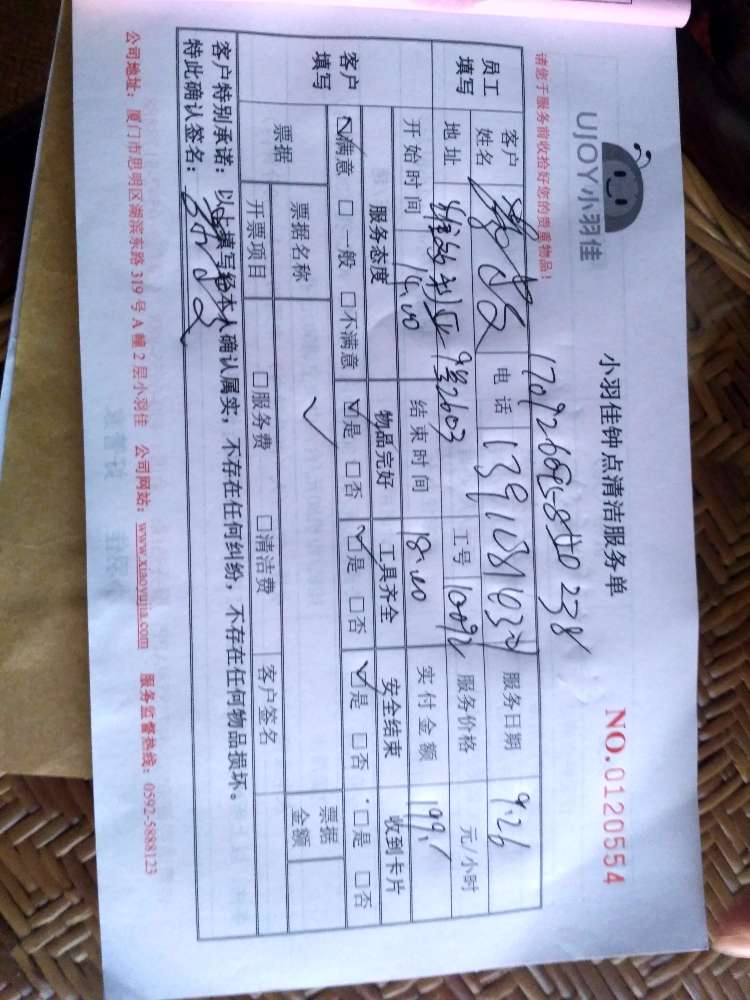 UJOY小羽佳
小羽佳钟点清洁服务单
NO.0120554
请您于服务前收拾好您的贵重物品！
员工填写
客户姓名
电话
服务日期 9.26
地址
9号2603
工号 10092
服务价格 元/小时
开始时间 14:00
结束时间 18:00
实付金额
客户填写
服务态度 物品完好 工具齐全 安全结束 收到卡片
☑满意 □一般 □不满意 ☑是 □否 ☑是 □否 ☑是 □否 □是 □否
票据
票据名称 ✓ 票据金额
开票项目 □服务费 □清洁费 客户签名
客户特别承诺：以上填写经本人确认属实，不存在任何纠纷，不存在任何物品损坏。
特此确认签名：
公司地址：厦门市思明区湖滨东路319号A幢2层小羽佳 公司网站：www.xiaoyujia.com 服务监督热线：0592-5888123